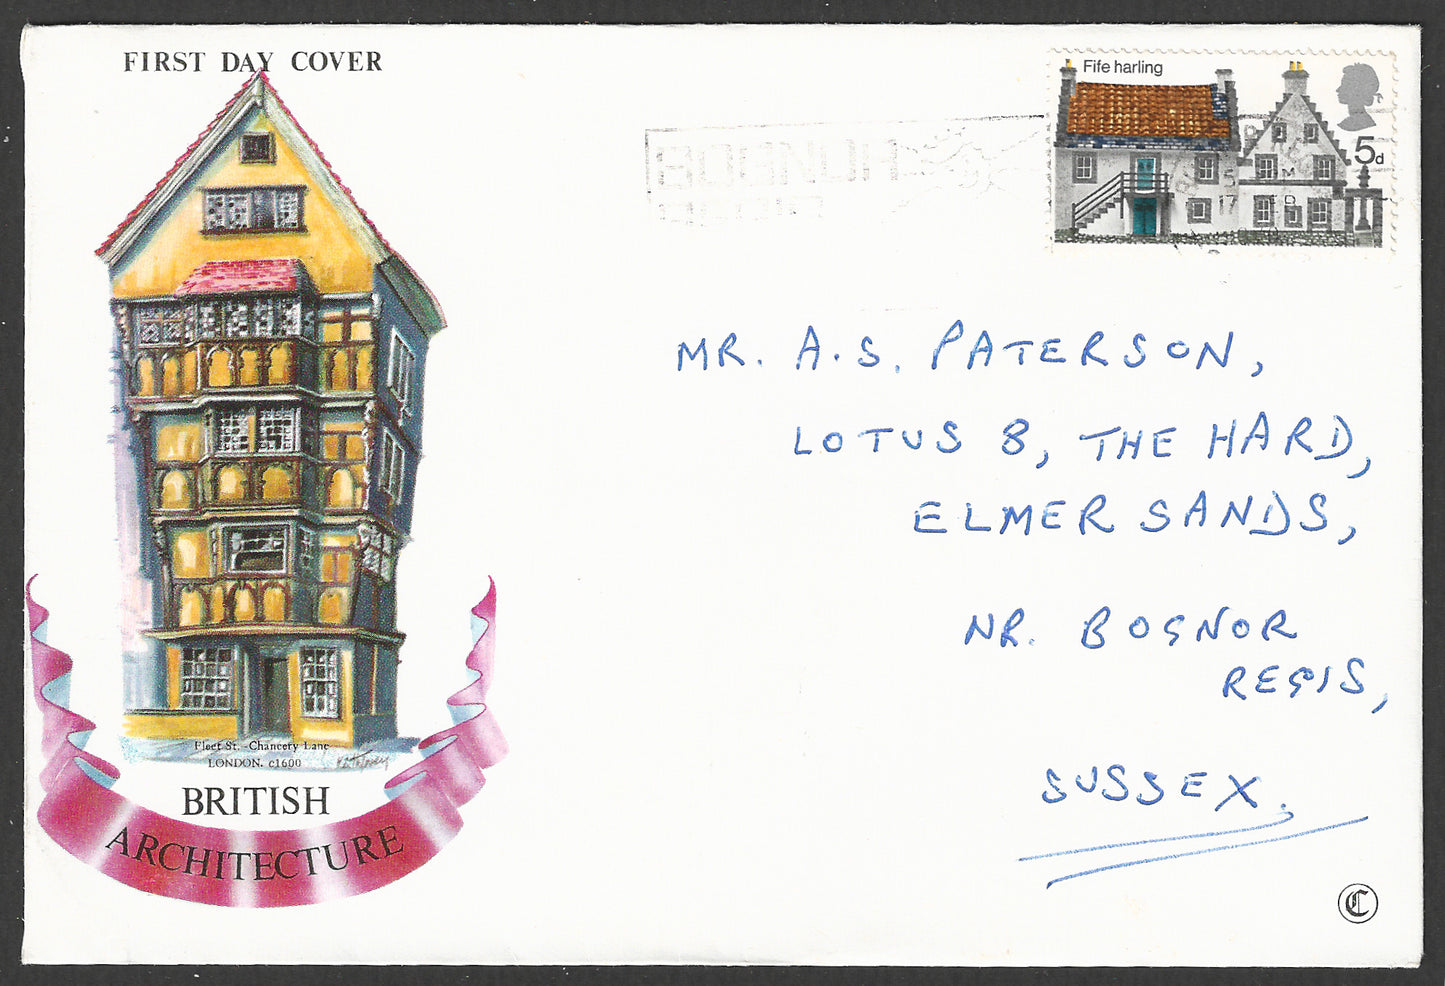 FIRST DAY COVER
Fife harling
5d
BOGNOR
MR. A.S. PATERSON,
LOTUS 8, THE HARD,
ELMER SANDS,
NR. BOGNOR
REGIS,
SUSSEX.
Fleet St.-Chancery Lane
LONDON. c1600
BRITISH
ARCHITECTURE
C